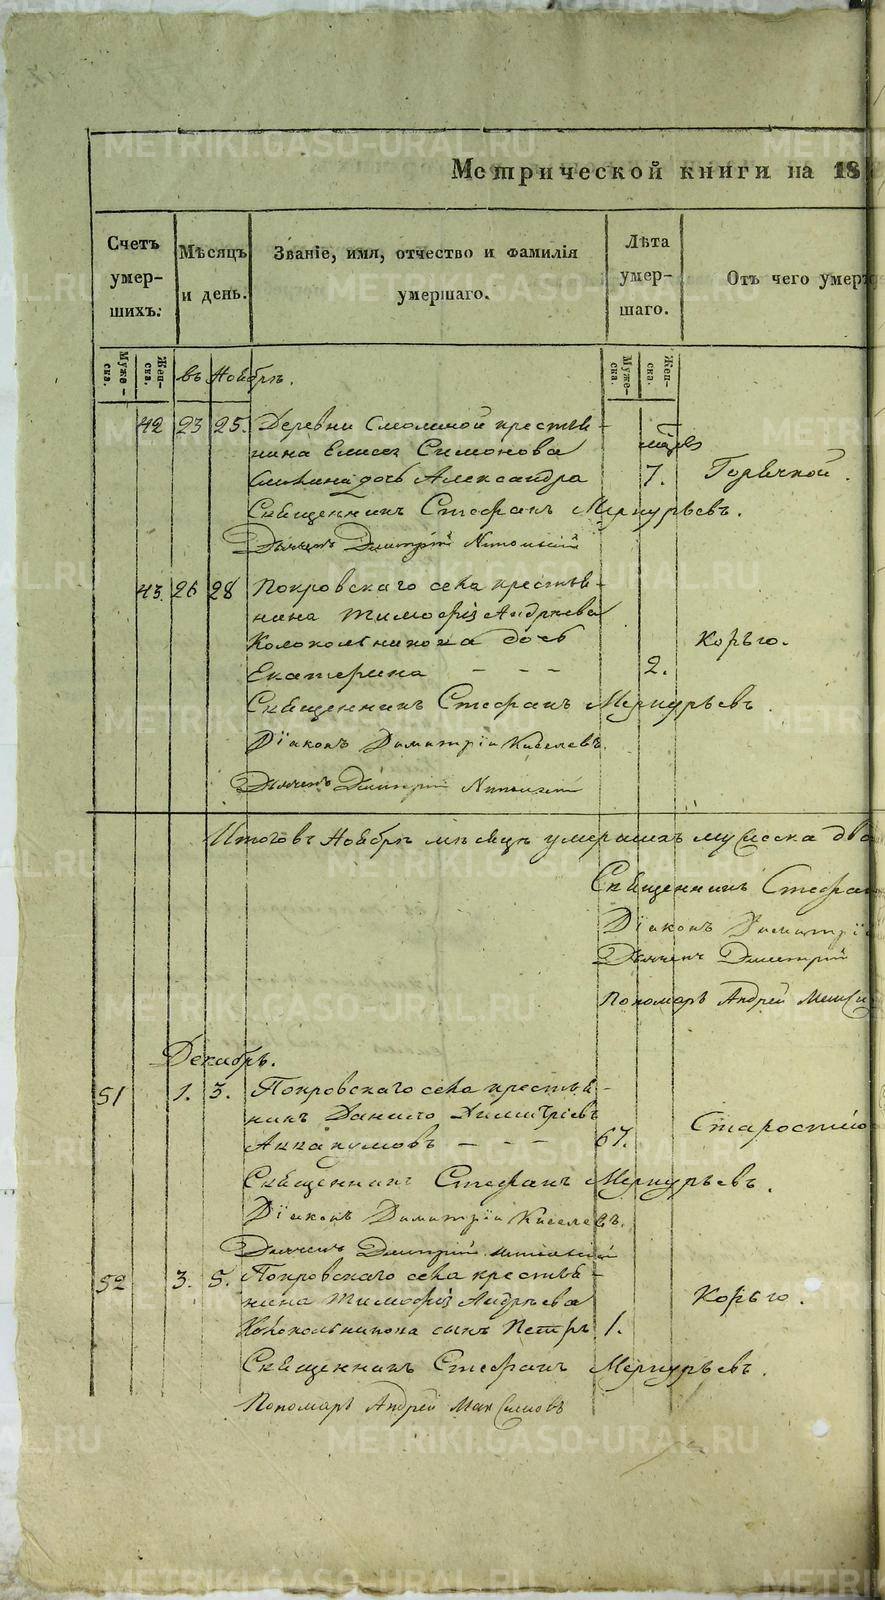 Метрической книги на 18
Счетъ умер-шихъ.
Мѣсяцъ и день.
Званіе, имя, отчество и фамилія умершаго.
Лѣта умер-шаго.
Отъ чего умер
Муже-ска.
Жен-ска.
въ Ноябрѣ.
Муже-ска.
Жен-ска.
42 23 25. Деревни Смолиной крестья-
нина Елисея Симонова
дочь Александра 7. Горячкой.
Священникъ Стефанъ Меркурьевъ.
Дьячекъ Дмитрій
43. 26 28 Покровскаго села крестья-
нина Тимофея Андреева
Колокольникова дочь Корью.
Екатерина — — — 2.
Священникъ Стефанъ Меркурьевъ.
Діаконъ Димитрій Киселевъ.
Дьячекъ Дмитрій
Итого въ Ноябрѣ мѣсяцѣ умершихъ мужеска два
Священникъ Стефан
Діаконъ Димитрі
Дьячекъ Дмитрій
Пономарь Андрей Макси
Декабрь.
51 1. 3. Покровскаго села крестья-
нинъ Данило Димитріевъ
Аввакумовъ — — — 67. Старостію
Священникъ Стефанъ Меркурьевъ.
Діаконъ Димитрій Киселевъ.
Дьячекъ Дмитрій
52 3. 5. Покровскаго села крестья-
нина Тимофея Андреева Корью.
Колокольникова сынъ Петръ 1.
Священникъ Стефанъ Меркурьевъ.
Пономарь Андрей Максимовъ
METRIKI.GASO-URAL.RU